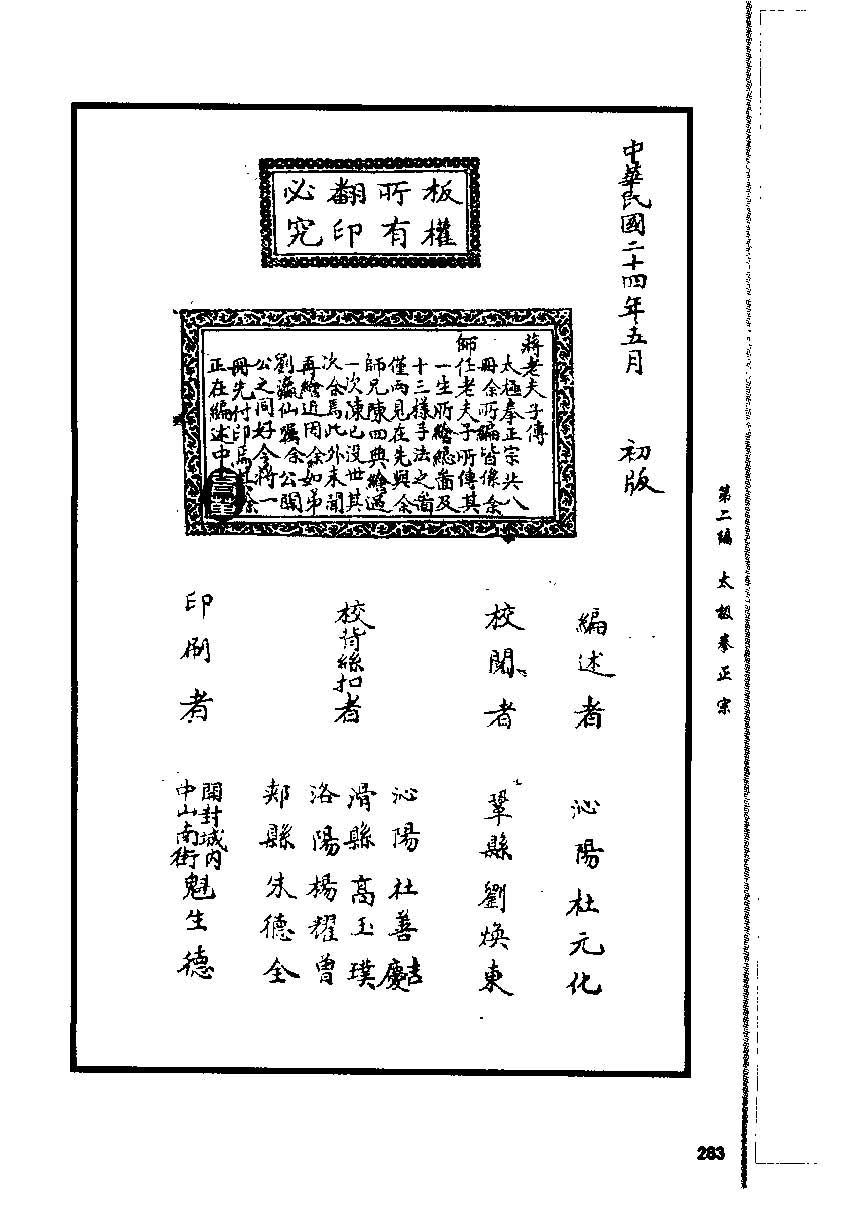 中華民國二十四年五月 初版
板權
所有
翻印
必究
蔣老夫子傳
太極拳正宗共八
冊余所編皆係余
師任老夫子所傳其
一生所繪總啚及
十三樣手法之啚
僅兩見在先與余
師兄陳四典繪過
一次陳已沒世其
次余焉此外未聞
再繪近因余如弟
劉瀛仙囑余公開
公之同好今將一
冊先付印焉其余
正在編述中
編述者 沁陽杜元化
校閱者 鞏縣劉煥東
校背絲扣者
沁陽杜善慶 吉
滑縣高玉璞
洛陽楊耀曾
郟縣朱德全
印刷者
開封城內
中山南街
魁生德
第二編 太极拳正宗
283